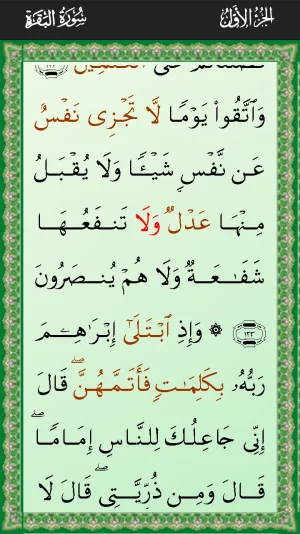 الجُزْءُ الأَوَّلُ سُورَةُ البَقَرَةِ
عَلَى ٱلْعَٰلَمِينَ ١٢٢
وَٱتَّقُوا۟ يَوْمًا لَّا تَجْزِى نَفْسٌ
عَن نَّفْسٍ شَيْـًٔا وَلَا يُقْبَلُ
مِنْهَا عَدْلٌ وَلَا تَنفَعُهَا
شَفَٰعَةٌ وَلَا هُمْ يُنصَرُونَ
١٢٣ ۞ وَإِذِ ٱبْتَلَىٰٓ إِبْرَٰهِـۧمَ
رَبُّهُۥ بِكَلِمَٰتٍ فَأَتَمَّهُنَّ ۖ قَالَ
إِنِّى جَاعِلُكَ لِلنَّاسِ إِمَامًا ۖ
قَالَ وَمِن ذُرِّيَّتِى ۖ قَالَ لَا